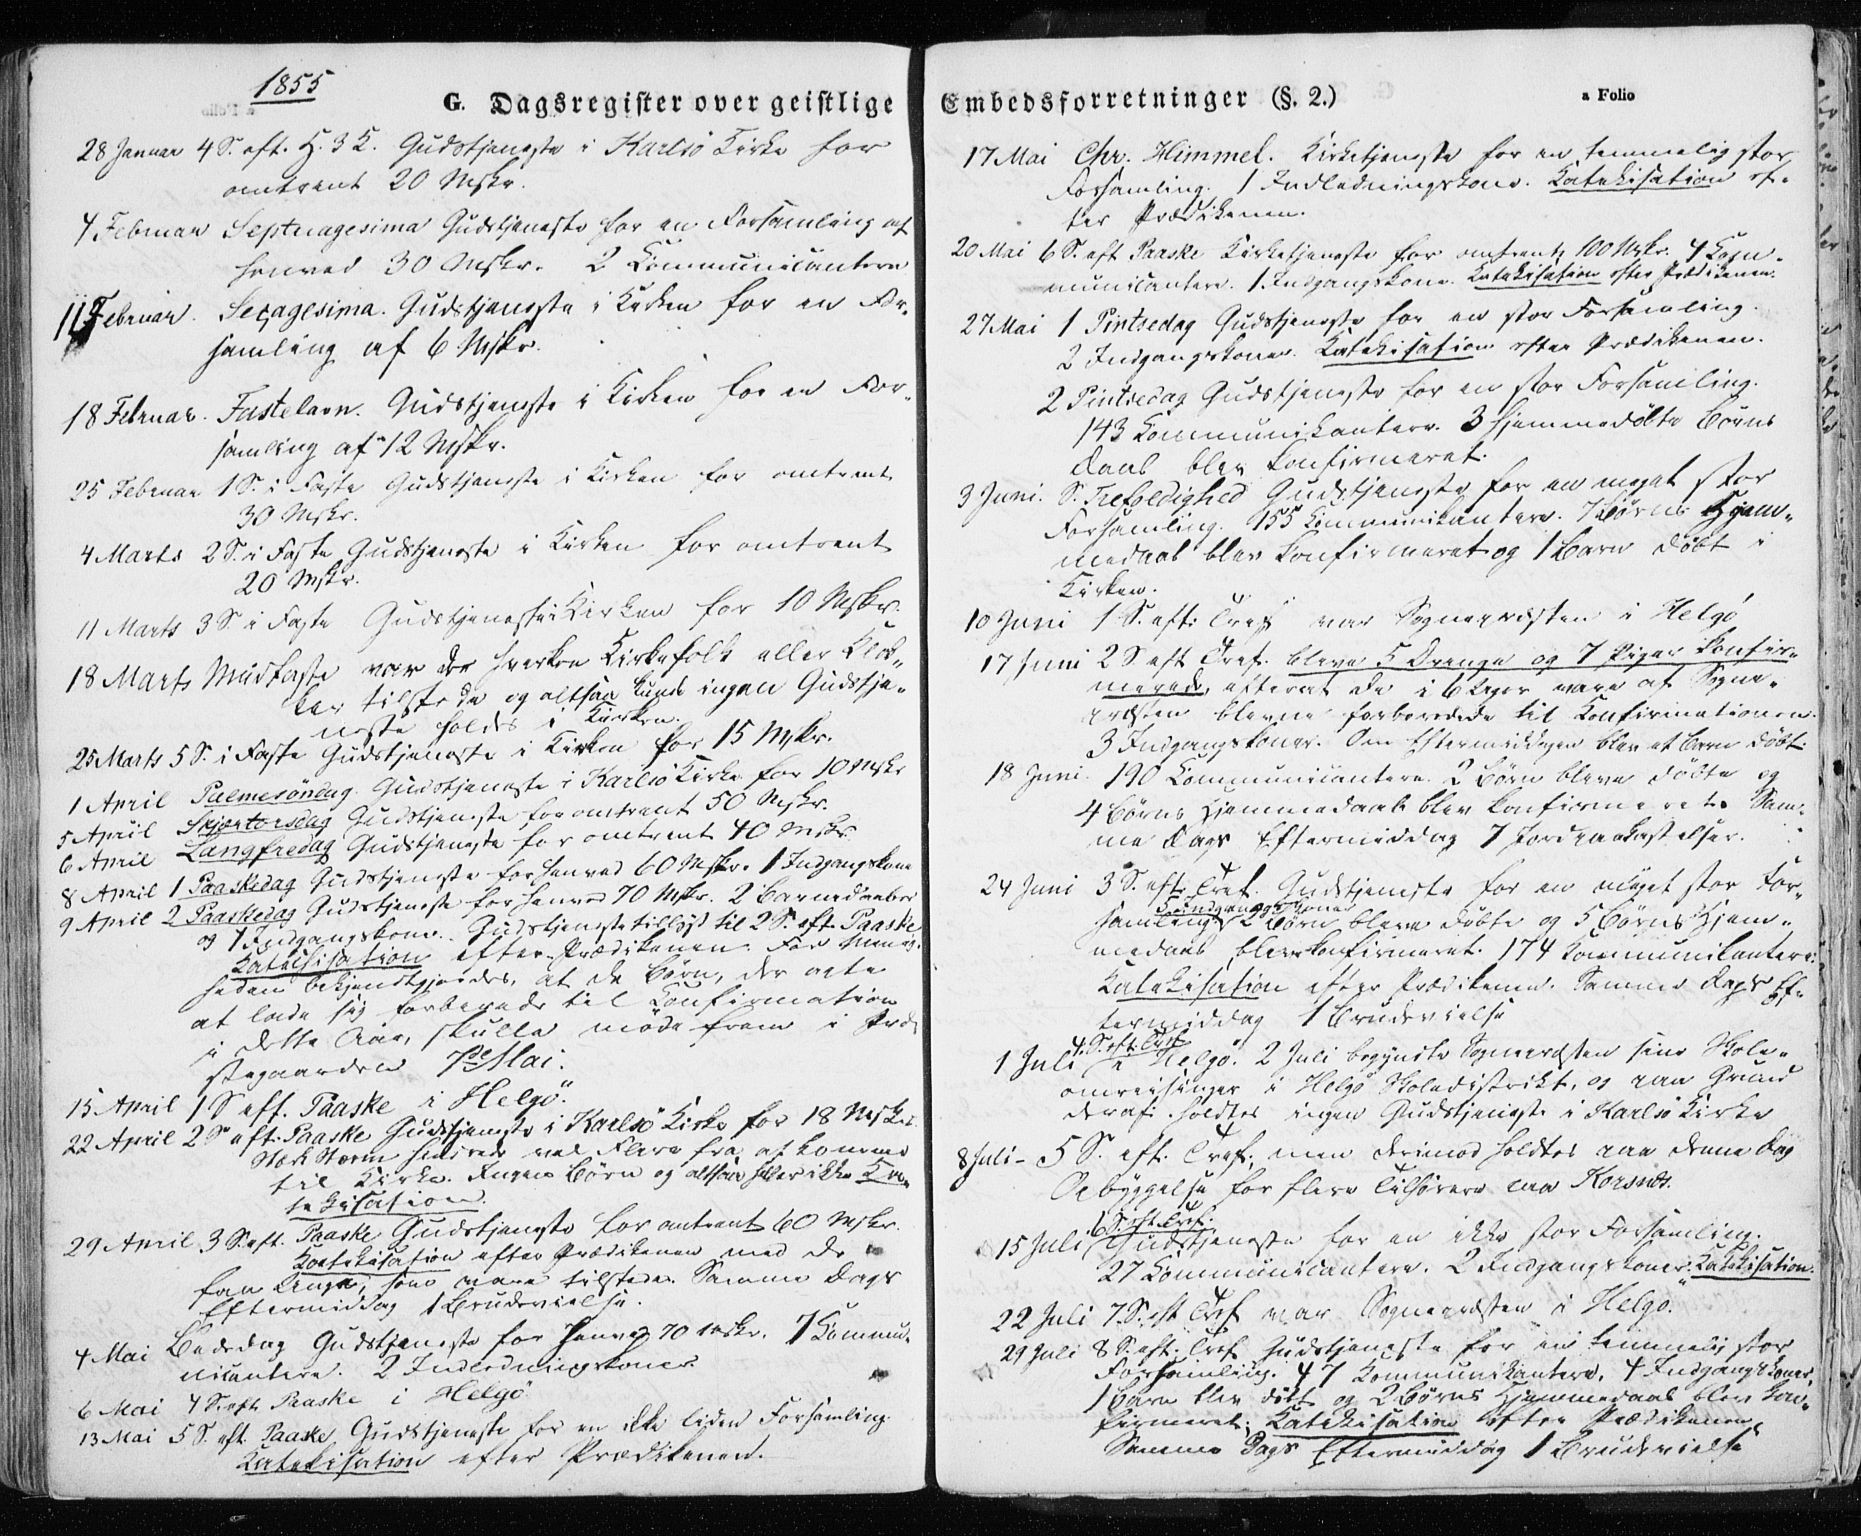 1855
G. Dagsregister over geistlige
28 Januar 4 S. eft. H. 3 K. Gudstjeneste i Karlsö Kirke for
omtrent 20 Mskr.
4 Februar Septuagesima Gudstjeneste for en Forsamling af
henved 30 Mskr. 2 Communicantere
11 Februar. Sexagesima. Gudstjeneste i Kirken for en For-
samling af 6 Mskr.
18 Februar. Fastelavn. Gudstjeneste i Kirken for en For-
samling af 12 Mskr.
25 Februar 1 S. i Faste Gudstjeneste i Kirken for omtrent
30 Mskr.
4 Marts 2 S. i Faste Gudstjeneste i Kirken for omtrent
20 Mskr.
11 Marts 3 S. i Faste Gudstjeneste i Kirken for 10 Mskr.
18 Marts Midfaste var der hverken Kirkefolk eller Klok-
ker tilstede og altsaa kunde ingen Gudstje-
neste holdes i Kirken.
25 Marts 5 S. i Faste Gudstjeneste i Kirken for 15 Mskr.
1 April Palmesöndag. Gudstjeneste i Karlsö Kirke for 10 Mskr
5 April Skjærtorsdag Gudstjeneste for omtrent 50 Mskr.
6 April Langfredag Gudstjeneste for omtrent 40 Mskr
8 April 1 Paaskedag Gudstjeneste for henved 60 Mskr. 1 Indgangskone
9 April 2 Paaskedag Gudstjeneste for henved 70 Mskr. 2 Barnedaaber
og 1 Indgangskone. Gudstjeneste tillyst til 2 S. eft. Paaske
Katechisation efter Prædikenen. For Menig-
heden bekjendtgjordes, at de Börn, der agte
at lade sig forberede til Confirmation
i dette Aar, skulle möde frem i Præ-
stegaarden 7de Mai.
15 April 1 S eft. Paaske i Helgö.
22 April 2 S eft. Paaske Gudstjeneste i Karlsö Kirke for 18 Mskr.
Stærk Storm hindrede vel Flere fra at komme
til Kirke. Ingen Börn og altsaa heller ikke Ka-
tekisation.
29 April 3 S. eft. Paaske Gudstjeneste for omtrent 60 Mskr.
Katekisation efter Prædikenen med de
faa Unge, som vare tilstede. Samme Dags
Eftermiddag 1 Brudevielse.
4 Mai Bededag Gudstjeneste for henved 70 Mskr. 7 Commu-
nicantere. 2 Indledningskoner
6 Mai 4 S. eft. Paaske i Helgö
13 Mai 5 S. eft. Paaske Gudstjeneste for en ikke liden Forsamling
Katekisation efter Prædikenen.
Embedsforretninger (§. 2.)
a Folio
17 Mai Chr. Himmel. Kirketjeneste for en temmelig stor
Forsamling. 1 Indledningskone. Katekisation ef-
ter Prædikenen.
20 Mai 6 S. eft Paaske Kirketjeneste for omtrent 100 Mskr. 4 Kom-
municantere. 1 Indgangskone. Katekisation efter Prædikenen.
27 Mai 1 Pintsedag Gudstjeneste for en stor Forsamling.
2 Indgangskoner. Katekisation efter Prædikenen.
2 Pintsedag Gudstjeneste for en stor Forsamling.
143 Kommunikantere. 3 hjemmedöbte Börns
Daab blev konfirmeret.
3 Juni. S. Trefoldighed Gudstjeneste for en meget stor
Forsamling. 155 Kommunikantere. 7 Börns Hjem-
medaab blev konfirmeret og 1 Barn döbt i
Kirken.
10 Juni 1 S. eft. Tref var Sognepræsten i Helgö
17 Juni 2 S eft Tref. bleve 5 Drenge og 7 Piger konfir-
merede, efterat de i 6 Uger vare af Sogne-
præsten blevne forberedede til Konfirmationen.
3 Indgangskoner. Om Eftermiddagen blev et Barn döbt.
18 Juni. 190 Communicantere. 2 Börn bleve döbte og
4 Börns Hjemmedaab blev konfirmeret. Sam-
me Dags Eftermiddag 7 Jordpaakastelser.
24 Juni 3 S. eft. Tref. Gudstjeneste for en meget stor For-
5 Indgangskoner
samling. 2 Börn bleve döbte og 5 Börns Hjem-
medaab blev konfirmeret. 174 Kommunikantere.
Katekisation efter Prædikenen. Samme Dags Ef-
termiddag 1 Brudevielse
4. S. eft. Tref
1 Juli i Helgö. 2 Juli begyndte Sognepræsten sine Skole-
omreisinger i Helgö Skoledistrikt, og paa Grund
deraf holdtes ingen Gudstjeneste i Karlsö Kirke
8 Juli - 5 S. eft. Tref; men derimod holdtes paa denne Dag
Opbyggelse for flere Tilhörere paa Korsnæs.
6 S. eft Tref.
15 Juli Gudstjeneste for en ikke stor Forsamling.
27 Kommunicantere. 2 Indgangskoner. Katekisation.
22 Juli 7. S. eft Tref var Sognepræsten i Helgö.
29 Juli 8 S. eft. Tref. Gudstjeneste for en temmelig stor
Forsamling. 47 Kommunikantere. 4 Indgangskoner,
1 Barn blev döbt og 2 Börns Hjemmedaab blev kon-
firmeret. Katekisation efter Prædikenen
Samme Dags Eftermiddag 1 Brudevielse